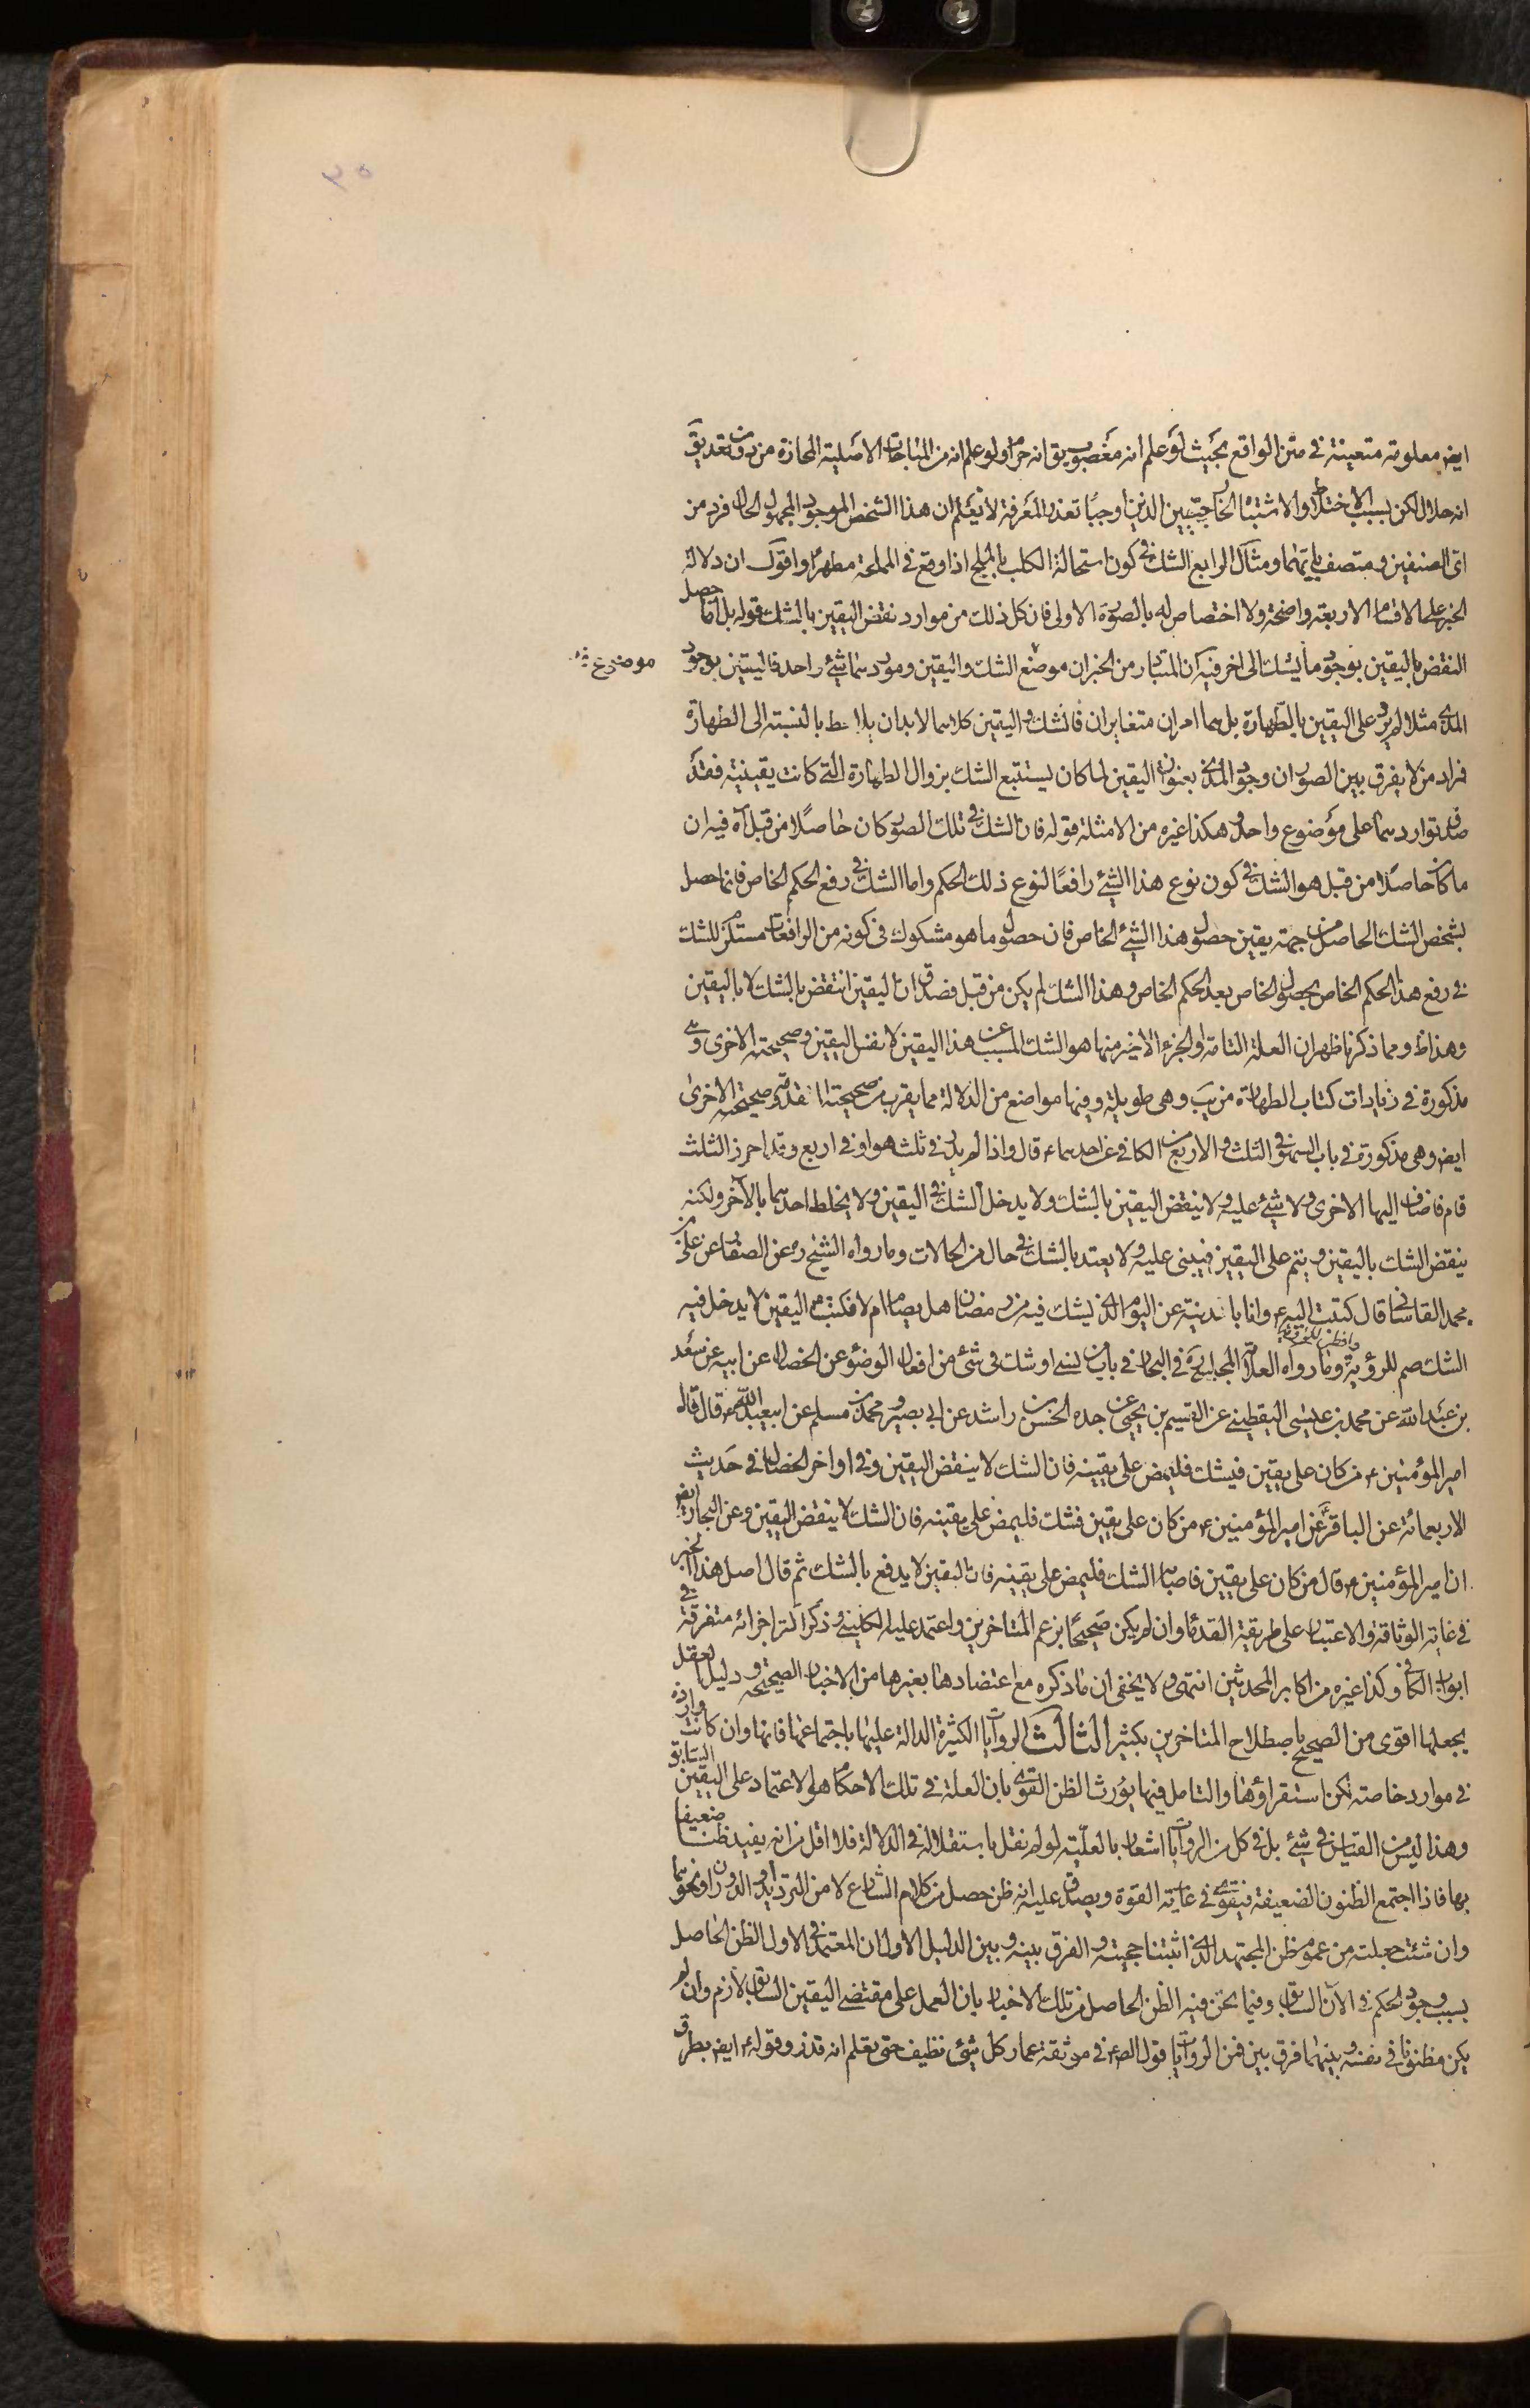 ايضا معلومة متعينة في متن الواقع بحيث لو علم انه مغصوب يق انه حرام او لو علم انه من المباحات الاصلية المحازة من دون تعد يق
انه حلال لكن بسبب الاختلاط والاشتباه الخارجيين الذين اوجبا تعذر المعرفة لا نعلم ان هذا الشخص الموجود المجهول الحال فرد من
اى الصنفين ومتصف بايتهما ومثال الرابع الشك في كون استحالة الكلب بالملح اذا وقع في المملحة مطهرا واقول ان دلالة
الخبر على الاقسام الاربعة واضحة ولا اختصاص له بالصورة الاولى فان كل ذلك من موارد نقض اليقين بالشك قوله بل انما حصل
النقض باليقين بوجود ما يشك الى اخر فيه ان المتبادر من الخبر ان موضع الشك واليقين وموردهما شئ واحد فاليقين بوجود
موضوع
المذى مثلا لم يرد على اليقين بالطهارة بل هما امران متغايران فالشك واليقين كلاهما لابد ان يلاحظ بالنسبة الى الطهارة
فراد من لا يفرق بين الصور ان وجود المذى بعنوان اليقين لما كان يستتبع الشك بزوال الطهارة التى كانت يقينية فقد
صدق تواردهما على موضوع واحد وهكذا غيره من الامثلة قوله فان الشك في تلك الصور كان حاصلا من قبل آه فيه ان
ما كان حاصلا من قبل هو الشك في كون نوع هذا الشئ رافعا لنوع ذلك الحكم واما الشك في رفع الحكم الخاص فانما حصل
بشخص الشك الحاصل من جهة يقين حصول هذا الشئ الخاص فان حصول ما هو مشكوك في كونه من الرافعات مستلزم للشك
في رفع هذا الحكم الخاص بحصول الخاص بعد الحكم الخاص وهذا الشك لم يكن من قبل فصدق ان اليقين انتقض بالشك لا باليقين
وهذا ظ ومما ذكرنا ظهر ان العلة التامة او الجزء الاخير منها هو الشك المسبب عن هذا اليقين لا نفس اليقين وصحيحته الاخرى وهى
مذكورة في زيادات كتاب الطهارة من يب وهى طويلة وفيها مواضع من الدلالة مما يقرب من صحيحته المتقدمة وصحيحته الاخرى
ايضا وهى مذكورة في باب السهو في الثلث والاربع من الكافي عن احدهما ع قال واذا لم يدر في ثلث هو او في اربع وقد احرز الثلث
قام فاضاف اليها الاخرى ولا شئ عليه ولا ينقض اليقين بالشك ولا يدخل الشك في اليقين ولا يخلط احدهما بالآخر ولكنه
ينقض الشك باليقين ويتم على اليقين فيبنى عليه ولا يعتد بالشك في حال من الحالات وما رواه الشيخ ره عن الصفار عن على بن
محمد القاسانى قال كتبت اليه ع وانا بالمدينة عن اليوم الذى يشك فيه من رمضان هل يصام ام لا فكتب ع اليقين لا يدخل فيه
الشك صم للرؤية وافطر للرؤية وما رواه العلامة المجلسى في البحار في باب من نسى او شك في شئ من افعال الوضوء عن الخصال عن ابيه عن سعد
بن عبد الله عن محمد بن عيسى اليقطينى عن القسيم بن يحيى عن جده الحسن بن راشد عن ابى بصير ومحمد بن مسلم عن ابيعبد الله ع قال قال
امير المؤمنين ع من كان على يقين فيشك فليمض على يقينه فان الشك لا ينقض اليقين وفي اواخر الخصال في حديث
الاربعمائة عن الباقر ع عن امير المؤمنين ع من كان على يقين فشك فليمض على يقينه فان الشك لا ينقض اليقين وعن البحار ايضا
ان امير المؤمنين ع قال من كان على يقين فاصابه الشك فليمض على يقينه فان اليقين لا يدفع بالشك ثم قال اصل هذا الخبر
في غاية الوثاقة والاعتبار على طريقة القدماء وان لم يكن صحيحا بزعم المتاخرين واعتمد عليه الكلينى وذكر اكثر اجزائه متفرقة في
ابواب الكافي وكذا غيره من اكابر المحدثين انتهى ولا يخفى ان ما ذكره مع اعتضادها بغيرها من الاخبار الصحيحة ودليل العقل
يجعلها اقوى من الصحيح باصطلاح المتاخرين بكثير الثالث الروايات الكثيرة الدالة عليها باجتماعها فانها وان كانت واردة
في موارد خاصة لكن استقراؤها والتامل فيها يورث الظن القوى بان العلة في تلك الاحكام هو الاعتماد على اليقين السابق
وهذا ليس من القياس في شئ بل في كل من الروايات اشعار بالعلية لو لم نقل باستقلاله في الدلالة فلا اقل من انه يفيد ظنا ضعيفا
بها فاذا اجتمع الظنون الضعيفة فيتقوى في غاية القوة ويصدق عليه انه ظن حصل من كلام الشارع لا من الترديد او الدوران ونحوهما
وان شئت جعلته من عموم ظن المجتهد الذى اثبتنا حجيته والفرق بينه وبين الدليل الاول ان المعتمد في الاول الظن الحاصل
بسبب وجود الحكم في الآن السابق وفيما نحن فيه الظن الحاصل من تلك الاخبار بان العمل على مقتضى اليقين السابق لازم وان لم
يكن مظنونا في نفسه وبينهما فرق بين فمن الروايات قول الص ع في موثقة عمار كل شئ نظيف حتى تعلم انه قذر وقوله ع ايضا بطرق